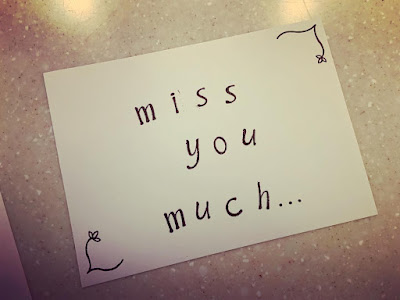 miss
you
much...